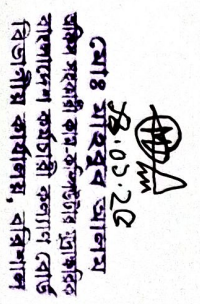 মোঃ মাহবুব আলম
অফিস সহকারী কাম কম্পিউটার মুদ্রাক্ষরিক
বাংলাদেশ কর্মচারী কল্যাণ বোর্ড
বিভাগীয় কার্যালয়, বরিশাল